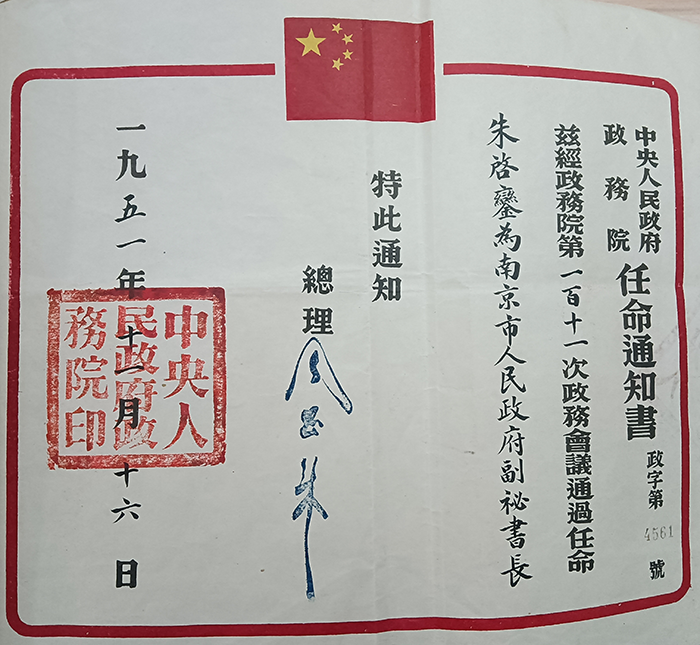 中央人民政府
政務院
任命通知書
政字第4561號
茲經政務院第一百十一次政務會議通過任命
朱啓鑾為南京市人民政府副祕書長
特此通知
總理
周恩來
一九五一年十一月十六日
中央人民政府政務院印